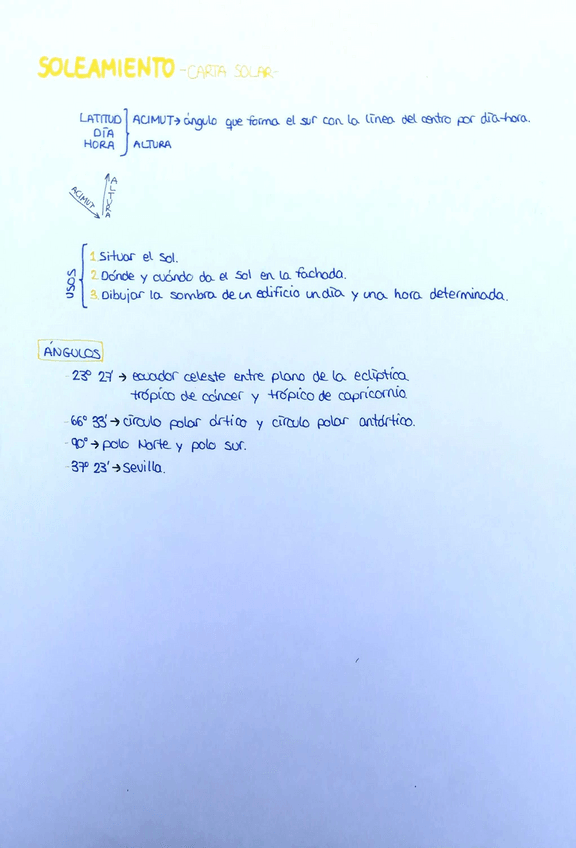 SOLEAMIENTO -CARTA SOLAR-
LATITUD ACIMUT→ ángulo que forma el sur con la línea del centro por día-hora.
DÍA
HORA ALTURA
ACIMUT
ALTURA
USOS
1. Situar el sol.
2. Dónde y cuándo da el sol en la fachada.
3. Dibujar la sombra de un edificio un día y una hora determinada.
ÁNGULOS
- 23º 27' → ecuador celeste entre plano de la eclíptica
trópico de cáncer y trópico de capricornio
- 66º 33' → círculo polar ártico y círculo polar antártico.
- 90º → polo Norte y polo sur.
- 37º 23' → Sevilla.